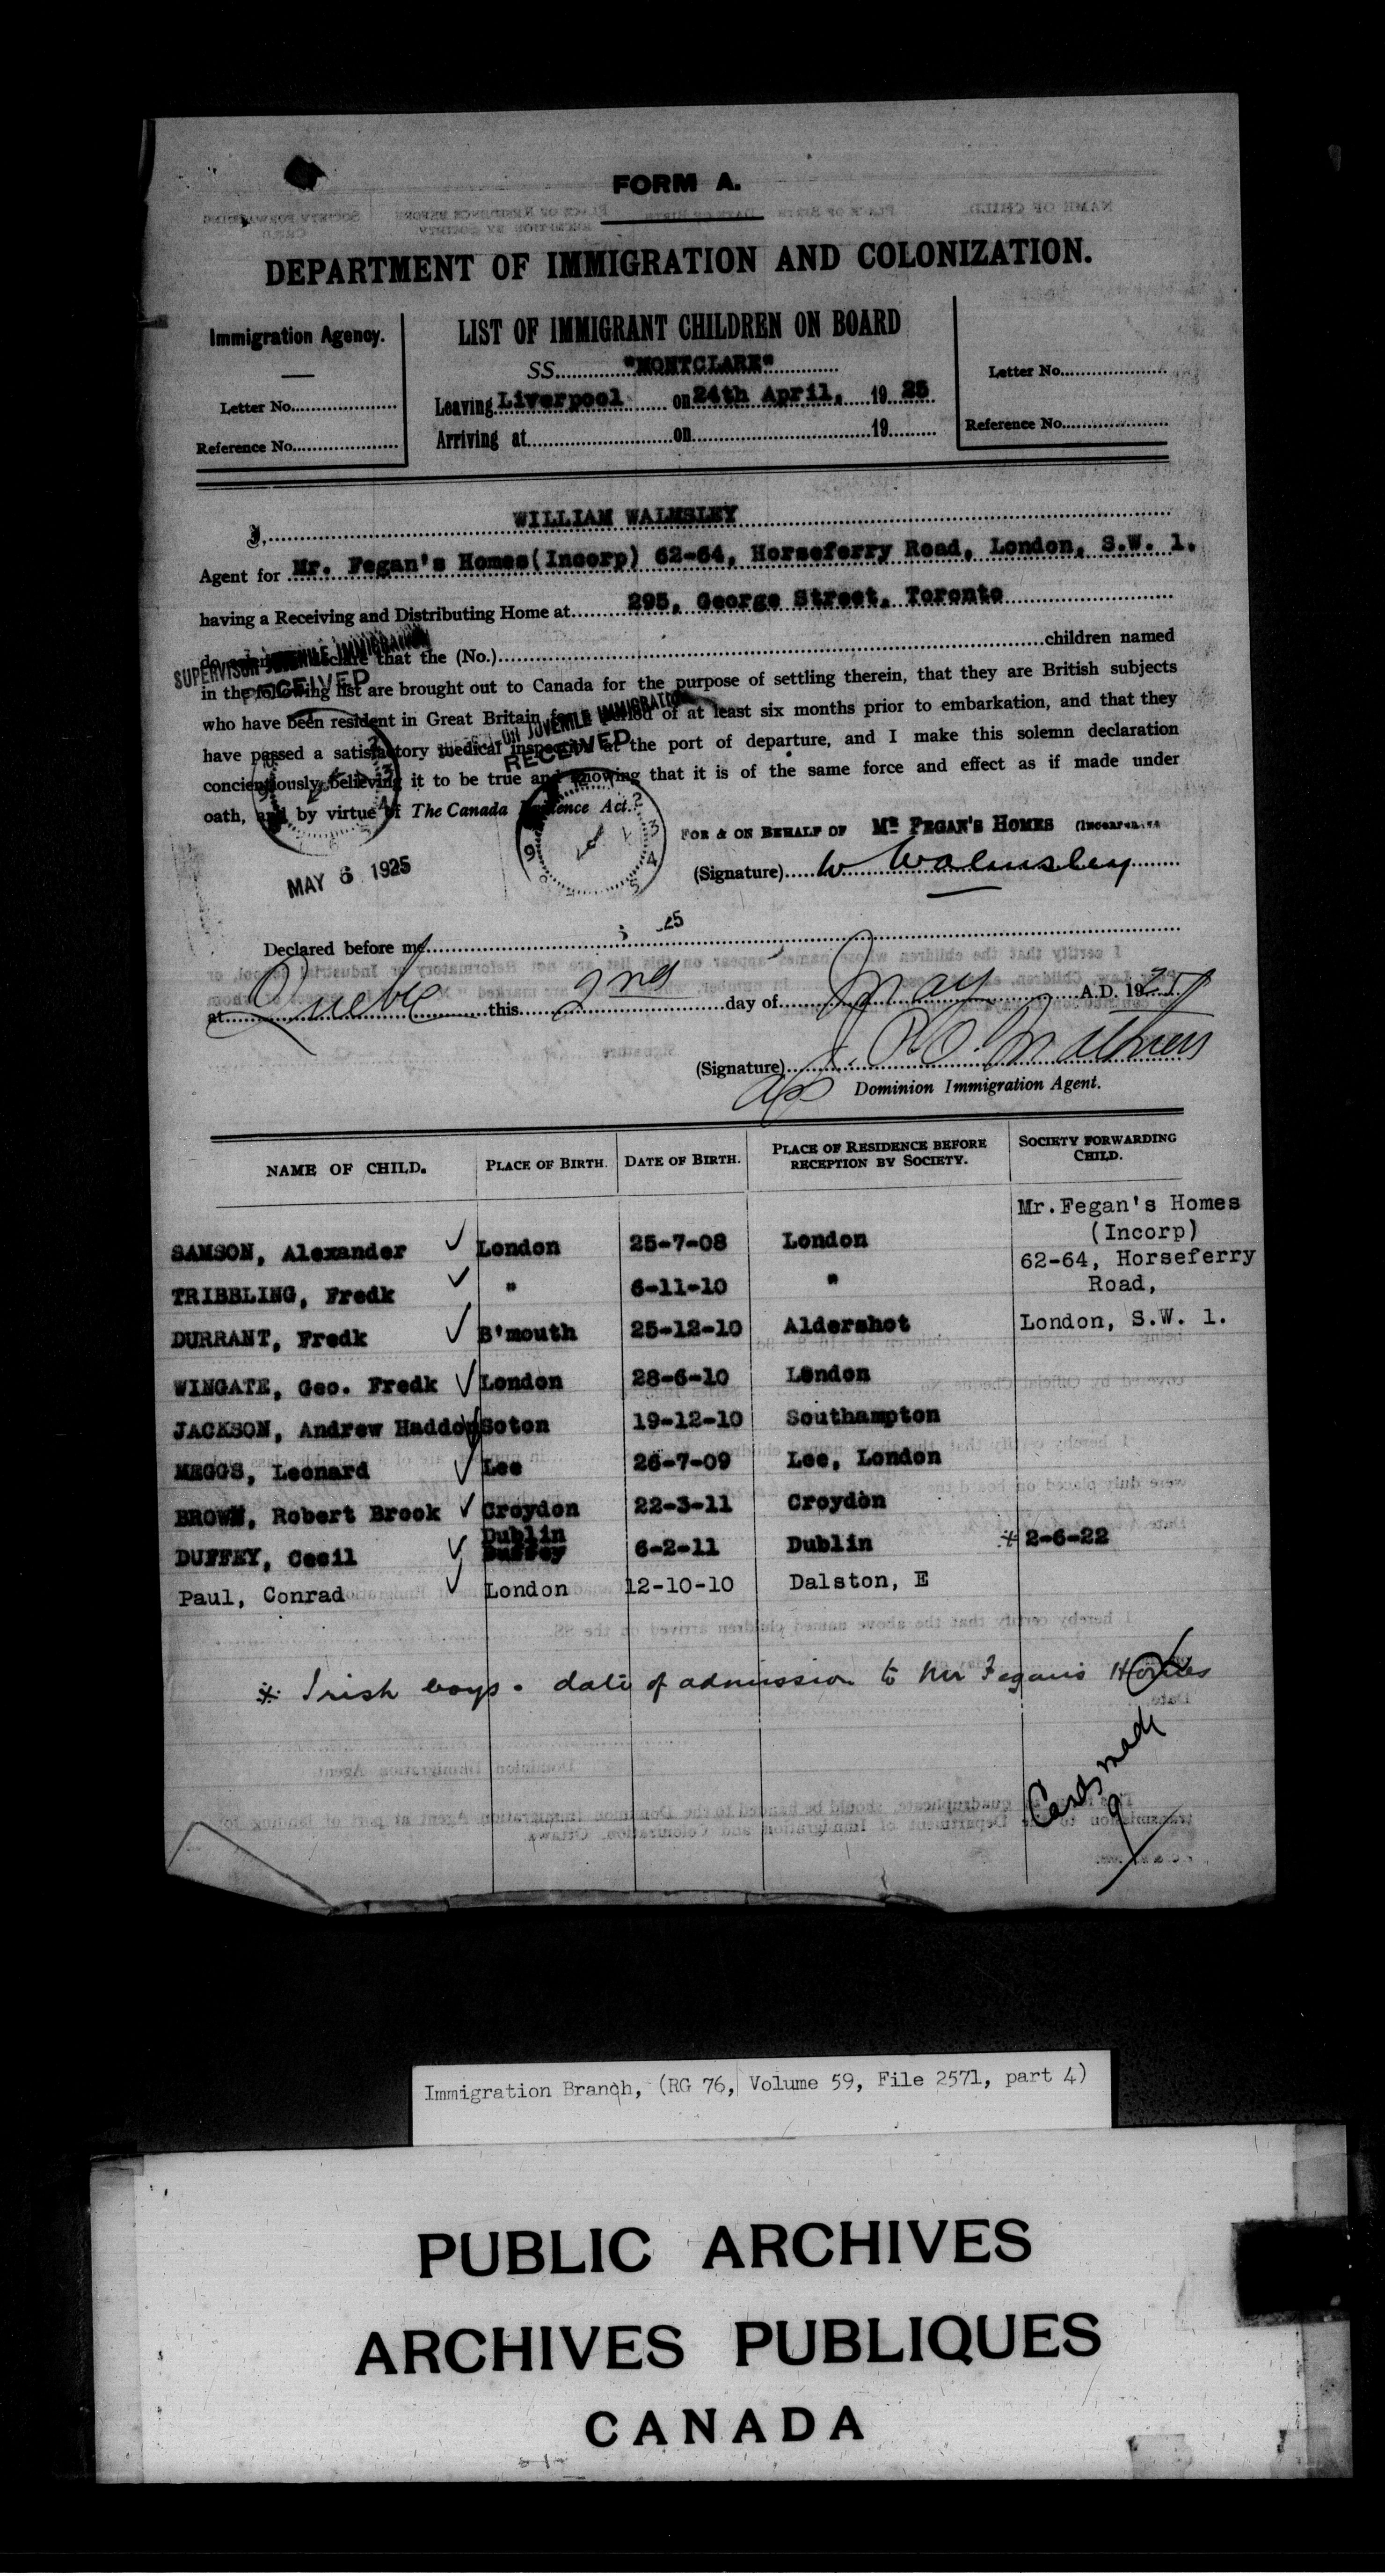 FORM A.
DEPARTMENT OF IMMIGRATION AND COLONIZATION.
Immigration Agency.
Letter No.
Reference No.
LIST OF IMMIGRANT CHILDREN ON BOARD
SS. "MONTCLARE"
Leaving Liverpool on 24th April, 19 25
Arriving at on 19
Letter No.
Reference No.
I, WILLIAM WALMSLEY
Agent for Mr. Fegan's Homes(Incorp) 62-64, Horseferry Road, London, S.W. 1.
having a Receiving and Distributing Home at 295, George Street, Toronto
do declare that the (No.) children named
in the following list are brought out to Canada for the purpose of settling therein, that they are British subjects
who have been resident in Great Britain for a period of at least six months prior to embarkation, and that they
have passed a satisfactory medical inspection at the port of departure, and I make this solemn declaration
concientiously believing it to be true and knowing that it is of the same force and effect as if made under
oath, and by virtue of The Canada Evidence Act.
SUPERVISOR JUVENILE IMMIGRATION
RECEIVED
JUVENILE IMMIGRATION
RECEIVED
MAY 6 1925
FOR & ON BEHALF OF MR FEGAN'S HOMES (INCORPORATED
(Signature) W Walmsley
Declared before me
at Quebec this 2nd day of May A.D. 1925
(Signature)
Dominion Immigration Agent.
NAME OF CHILD. PLACE OF BIRTH. DATE OF BIRTH. PLACE OF RESIDENCE BEFORE RECEPTION BY SOCIETY. SOCIETY FORWARDING CHILD.
Mr.Fegan's Homes
(Incorp)
62-64, Horseferry
Road,
London, S.W. 1.
SAMSON, Alexander ✓ London 25-7-08 London
TRIBBLING, Fredk ✓ " 6-11-10 "
DURRANT, Fredk ✓ B'mouth 25-12-10 Aldershot
WINGATE, Geo. Fredk ✓ London 28-6-10 London
JACKSON, Andrew Haddon ✓ Soton 19-12-10 Southampton
MEGGS, Leonard ✓ Lee 26-7-09 Lee, London
BROWN, Robert Brook ✓ Croydon 22-3-11 Croydon
DUFFEY, Cecil ✓ Dublin 6-2-11 Dublin * 2-6-22
Paul, Conrad ✓ London 12-10-10 Dalston, E
* Irish boys. date of admission to Mr Fegan's Homes
Cards made
9
Immigration Branch, (RG 76, Volume 59, File 2571, part 4)
PUBLIC ARCHIVES
ARCHIVES PUBLIQUES
CANADA